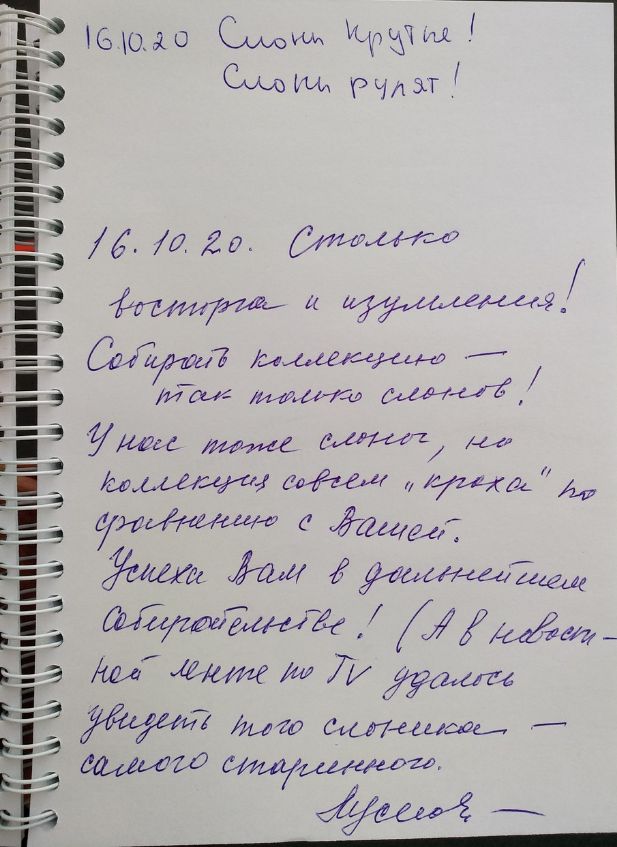 16.10.20 Слоны крутые!
Слоны рулят!
16.10.20. Столько
восторга и изумления!
Собирать коллекцию —
так только слонов!
У нас тоже слоны, но
коллекция совсем „кроха" по
сравнению с Вашей.
Успеха Вам в дальнейшем
собирательстве! (А в новост-
ной ленте по TV удалось
увидеть того слоника —
самого старинного.